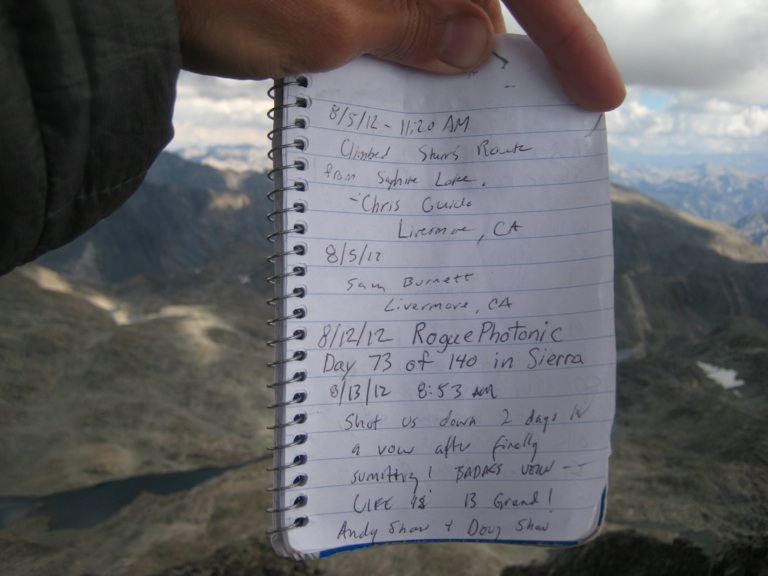 8/5/12 - 11:20 AM
Climbed Starrs Route
from Sapphire Lake.
-Chris Guido
Livermore, CA
8/5/12
Sam Burnett
Livermore, CA
8/12/12 RoguePhotonic
Day 73 of 140 in Sierra
8/13/12 8:53 AM
Shot us down 2 days in
a row after finally
summiting! BADASS VIEW --
LIFE is Grand!
Andy Shaw & Doug Shaw